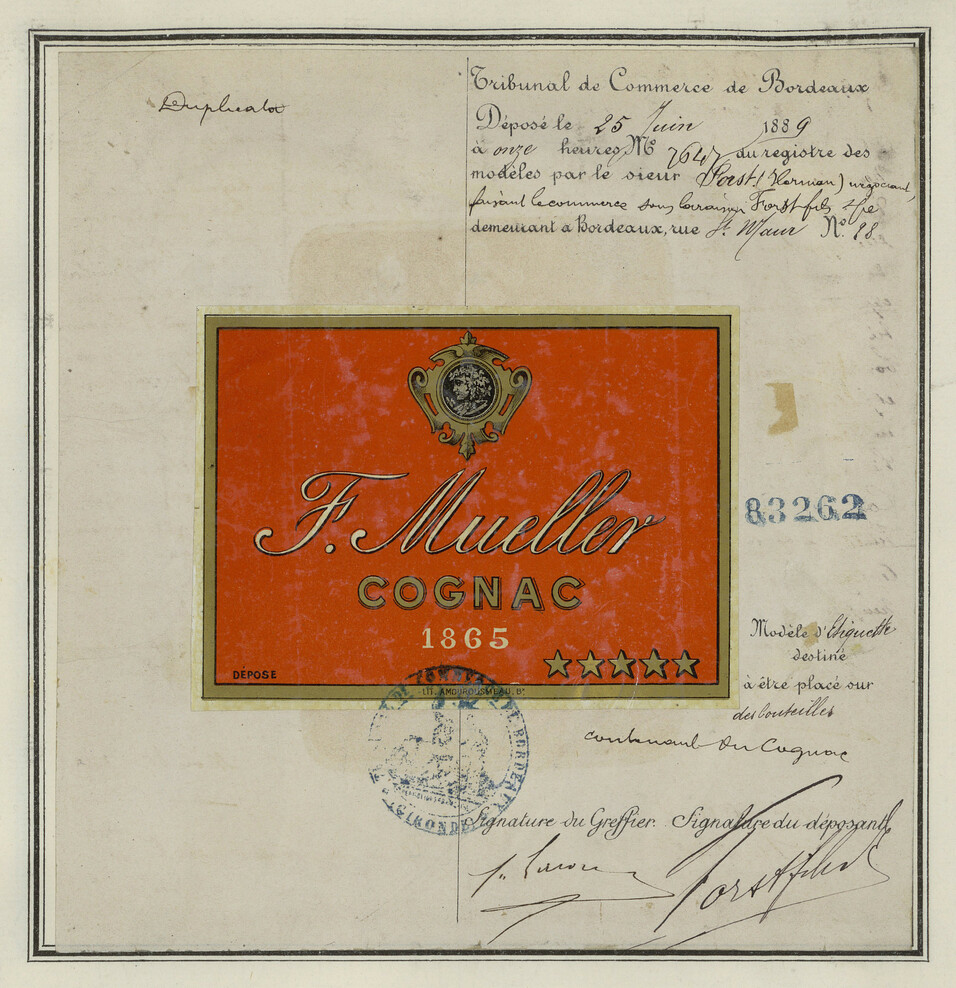 Duplicata
Tribunal de Commerce de Bordeaux
Déposé le 25 Juin 1889
à onze heures, No 7647 du registre des
modèles par le sieur Forst (Herman) négociant,
faisant le commerce sous la raison Forst fils & Cie
demeurant à Bordeaux, rue St Maur No. 18
F. Mueller
COGNAC
1865
DÉPOSÉ
LIT. AMOUROUS
83262
Modèle d'Etiquette
destiné
à être placé sur
des bouteilles
contenant du Cognac
DE COMMERCE DE BORDEAUX
GIRONDE
Signature du Greffier. Signature du déposant
Forst fils & Cie